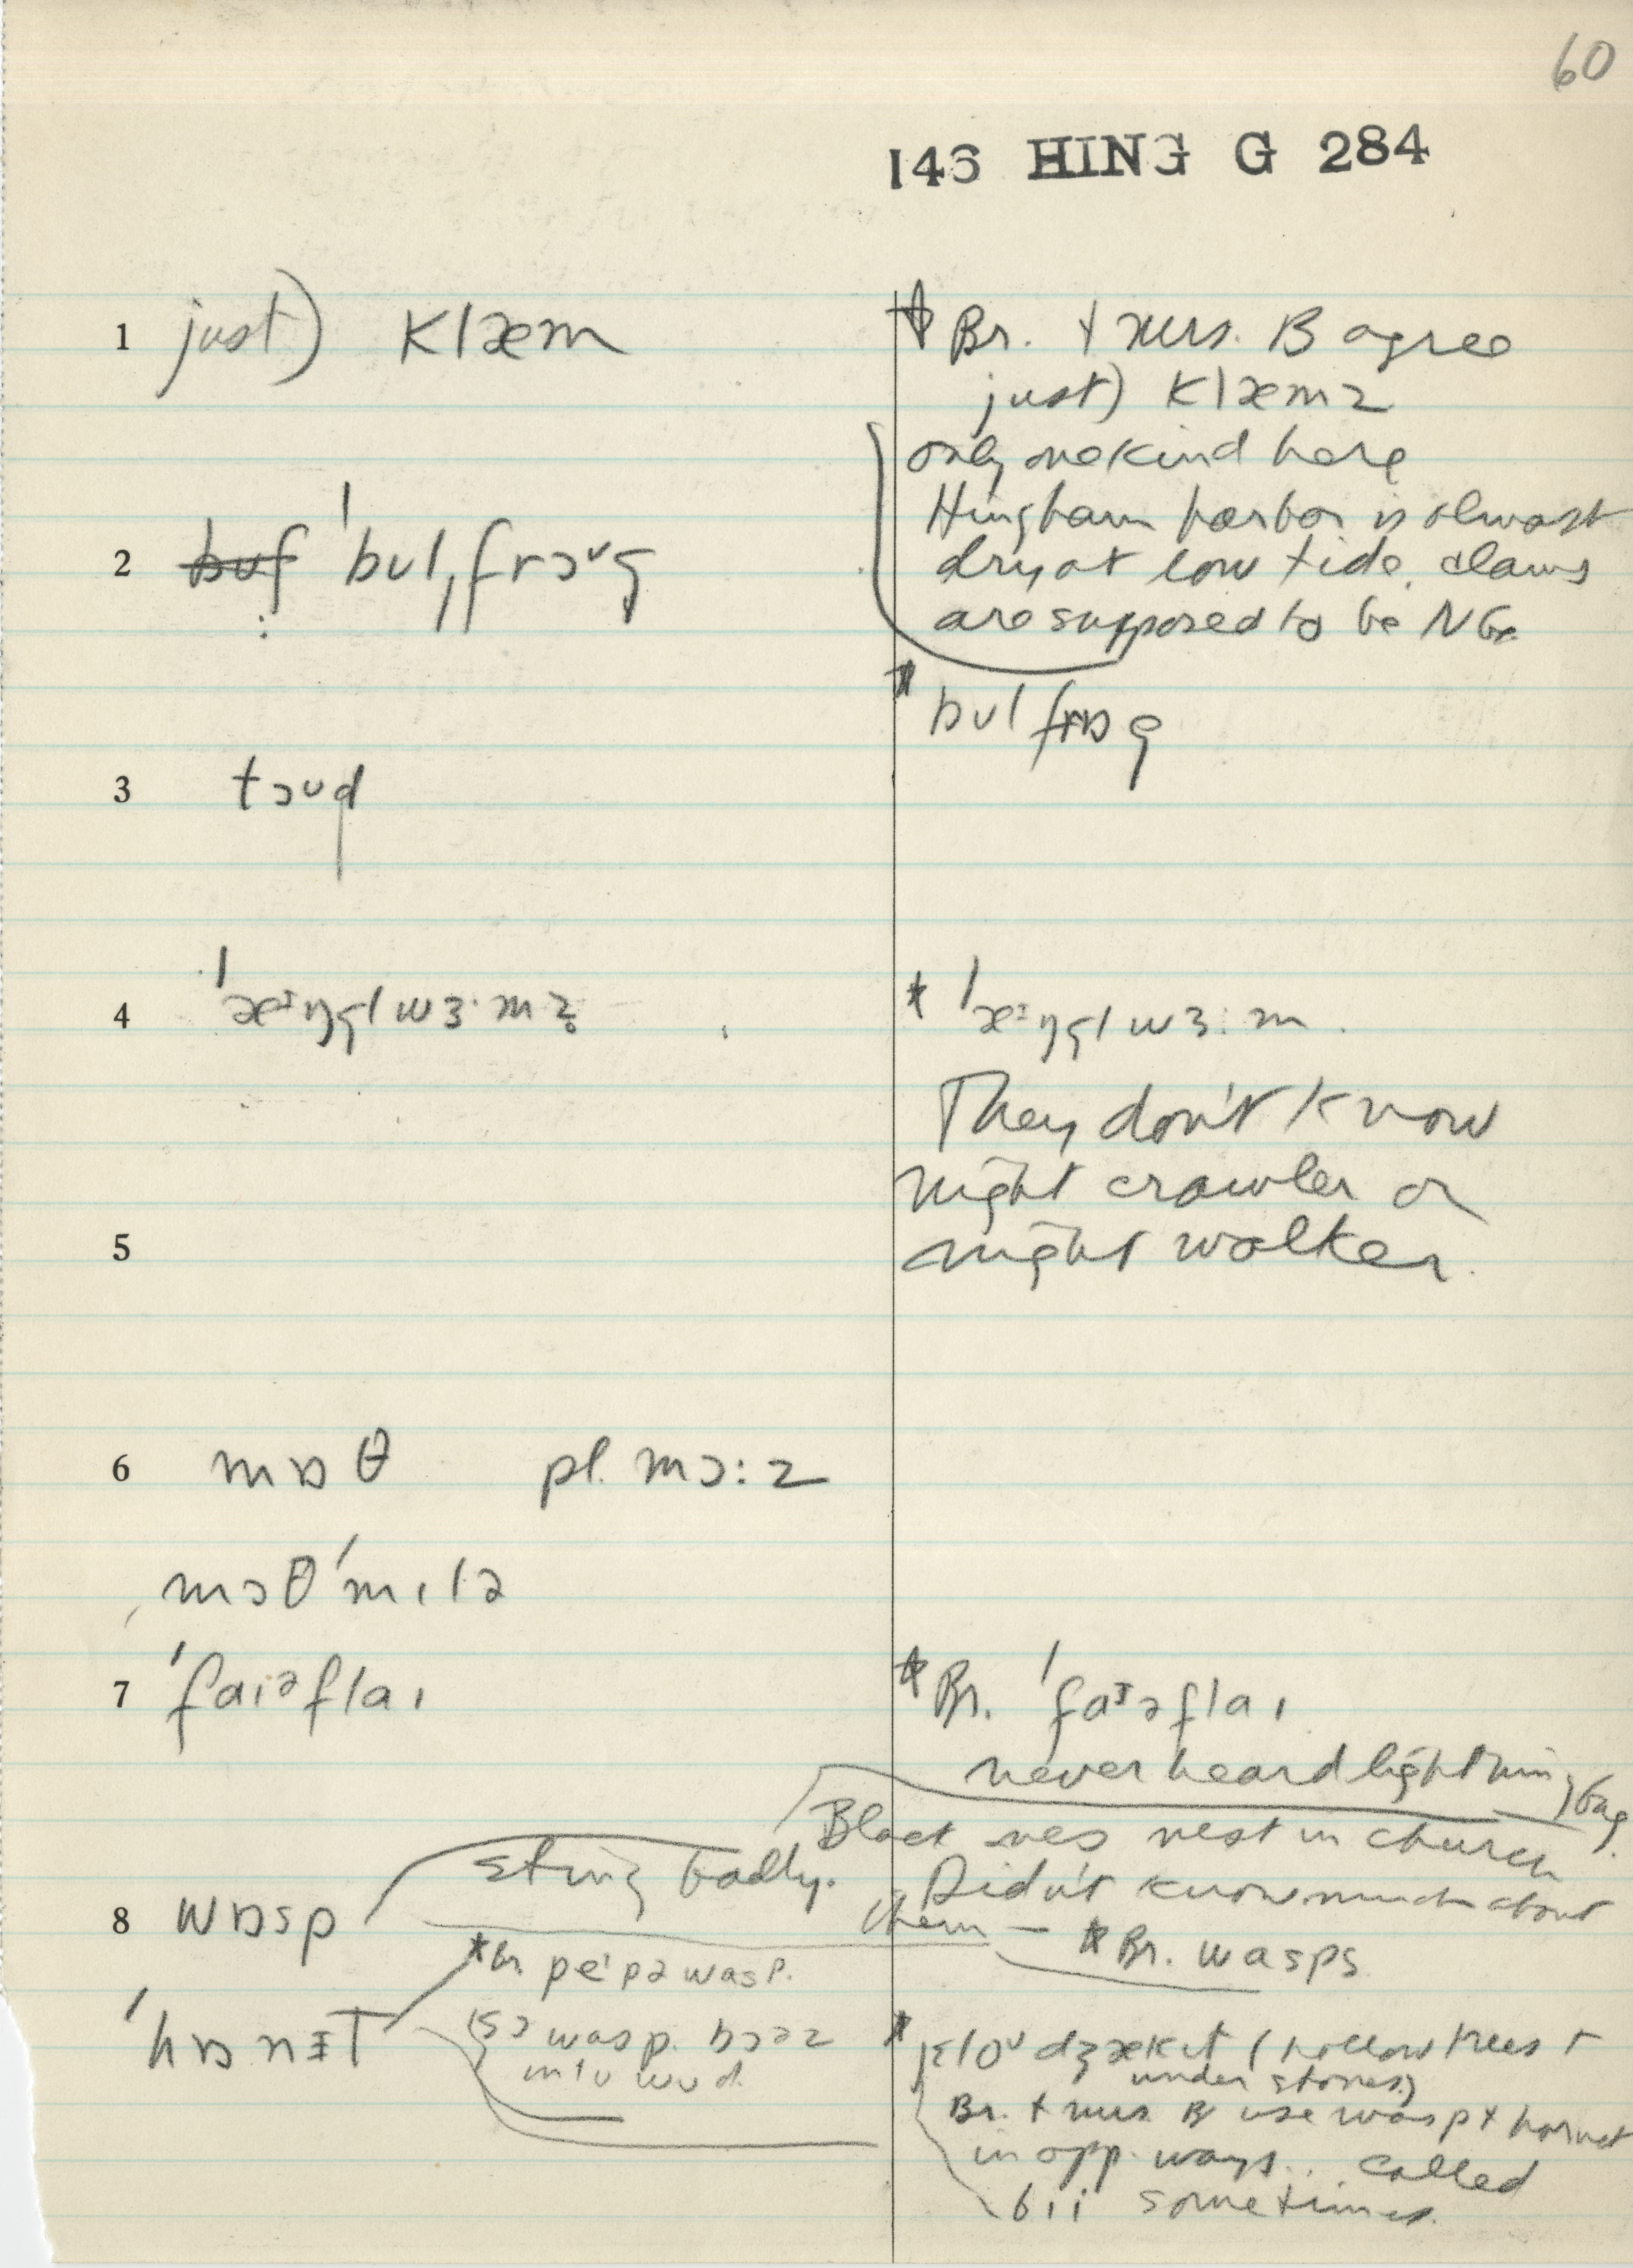 60
146 HING G 284
1 just) klæm
* Br. + Mrs. B agree
just) klæmz
only one kind here
Hingham harbor is almost
dry at low tide. clams
are supposed to be NG.
2 buf ˈbʊlˌfrɔᶷg
* bʊlfrɒg
3 tɔʊd
4 ˈæᶦŋglwɜ·mz̥
* ˈæᶦŋglwɜ:m
They don't know
night crawler or
night walker.
5
6 mɒθ pl. mɔ:z
mɔθˈmɪlə
7 ˈfaɪəflaɪ
* Br. ˈfaᶦəflaɪ
never heard lightning bug.
Black ones nest in church
sting badly. Didn't know much about
them — * Br. wasps
8 wɒsp
* Br. peˈpə wasp.
ˈhɒnɪT
wasp. bɔəz
intʊ wʊd.
* jɛloᶷ dʒækɪt (hollow trees +
under stones)
Br. + Mrs. B use wasp + hornet
in opp. ways.. called
bii sometimes.